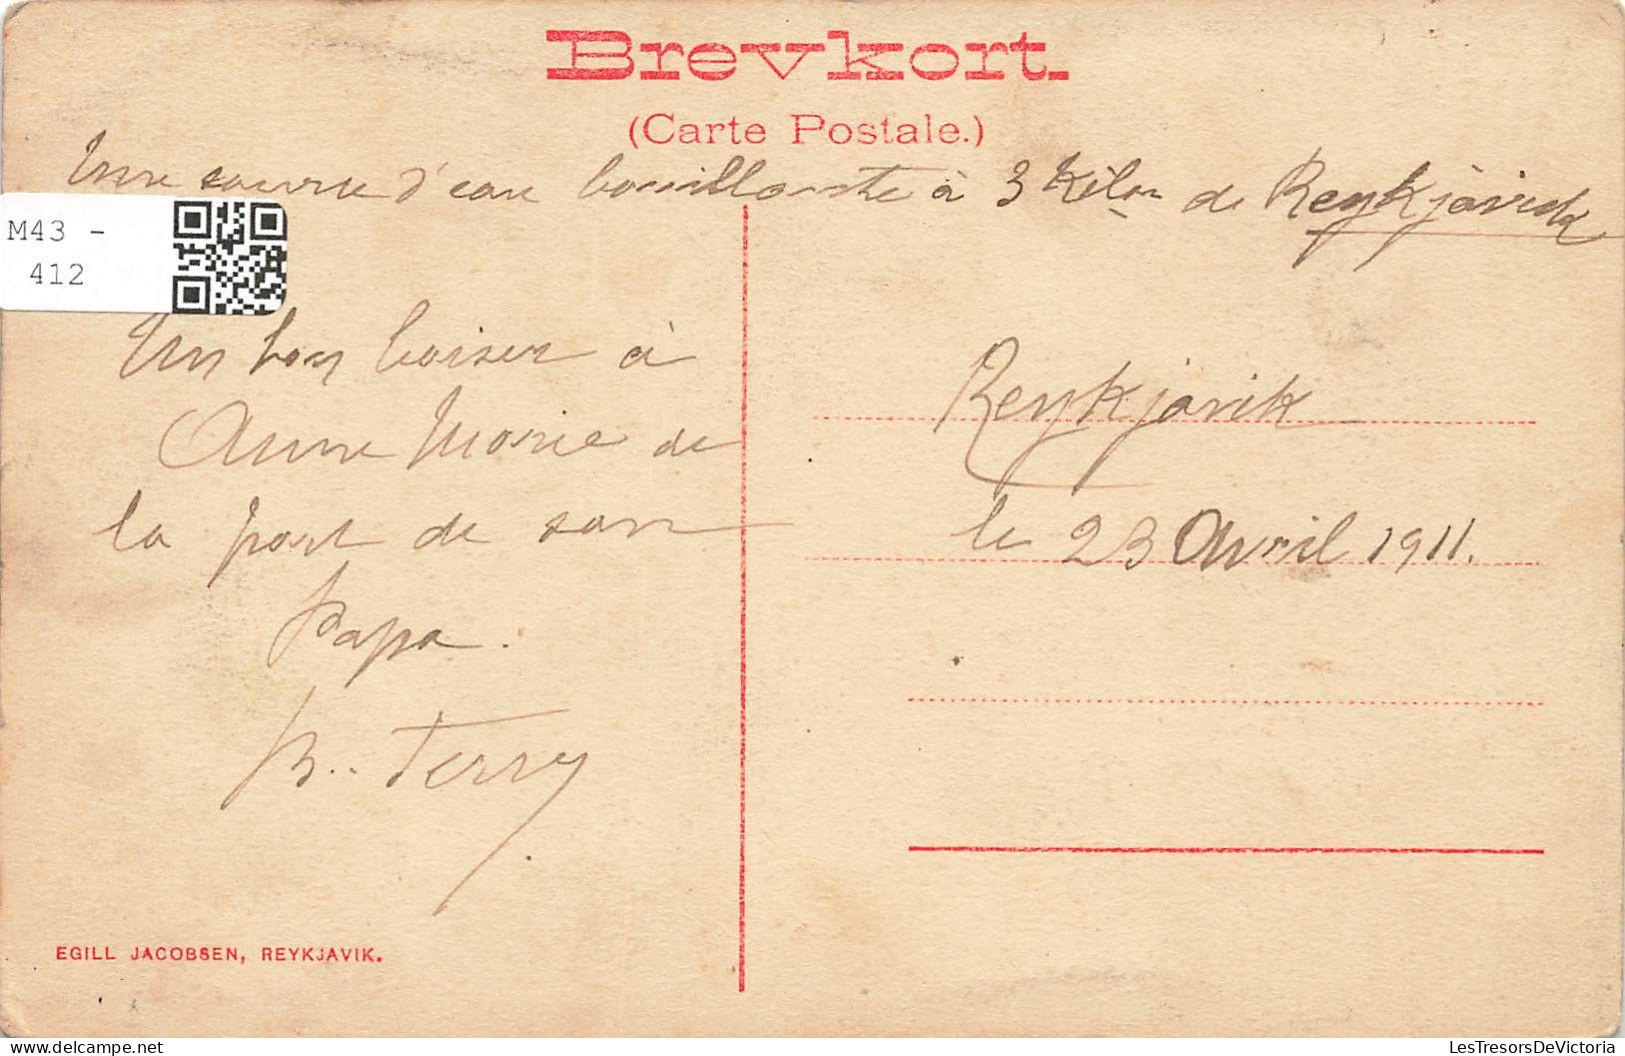 Brevkort.
(Carte Postale.)
Une source d'eau bouillante à 3 Kilom de Reykjàvick
M43 -
412
Un bon baiser à
Anne Marie de
la part de son
Papa.
Terry
Reykjavik
le 23 Avril 1911.
EGILL JACOBSEN, REYKJAVIK.
LesTresorsDeVictoria